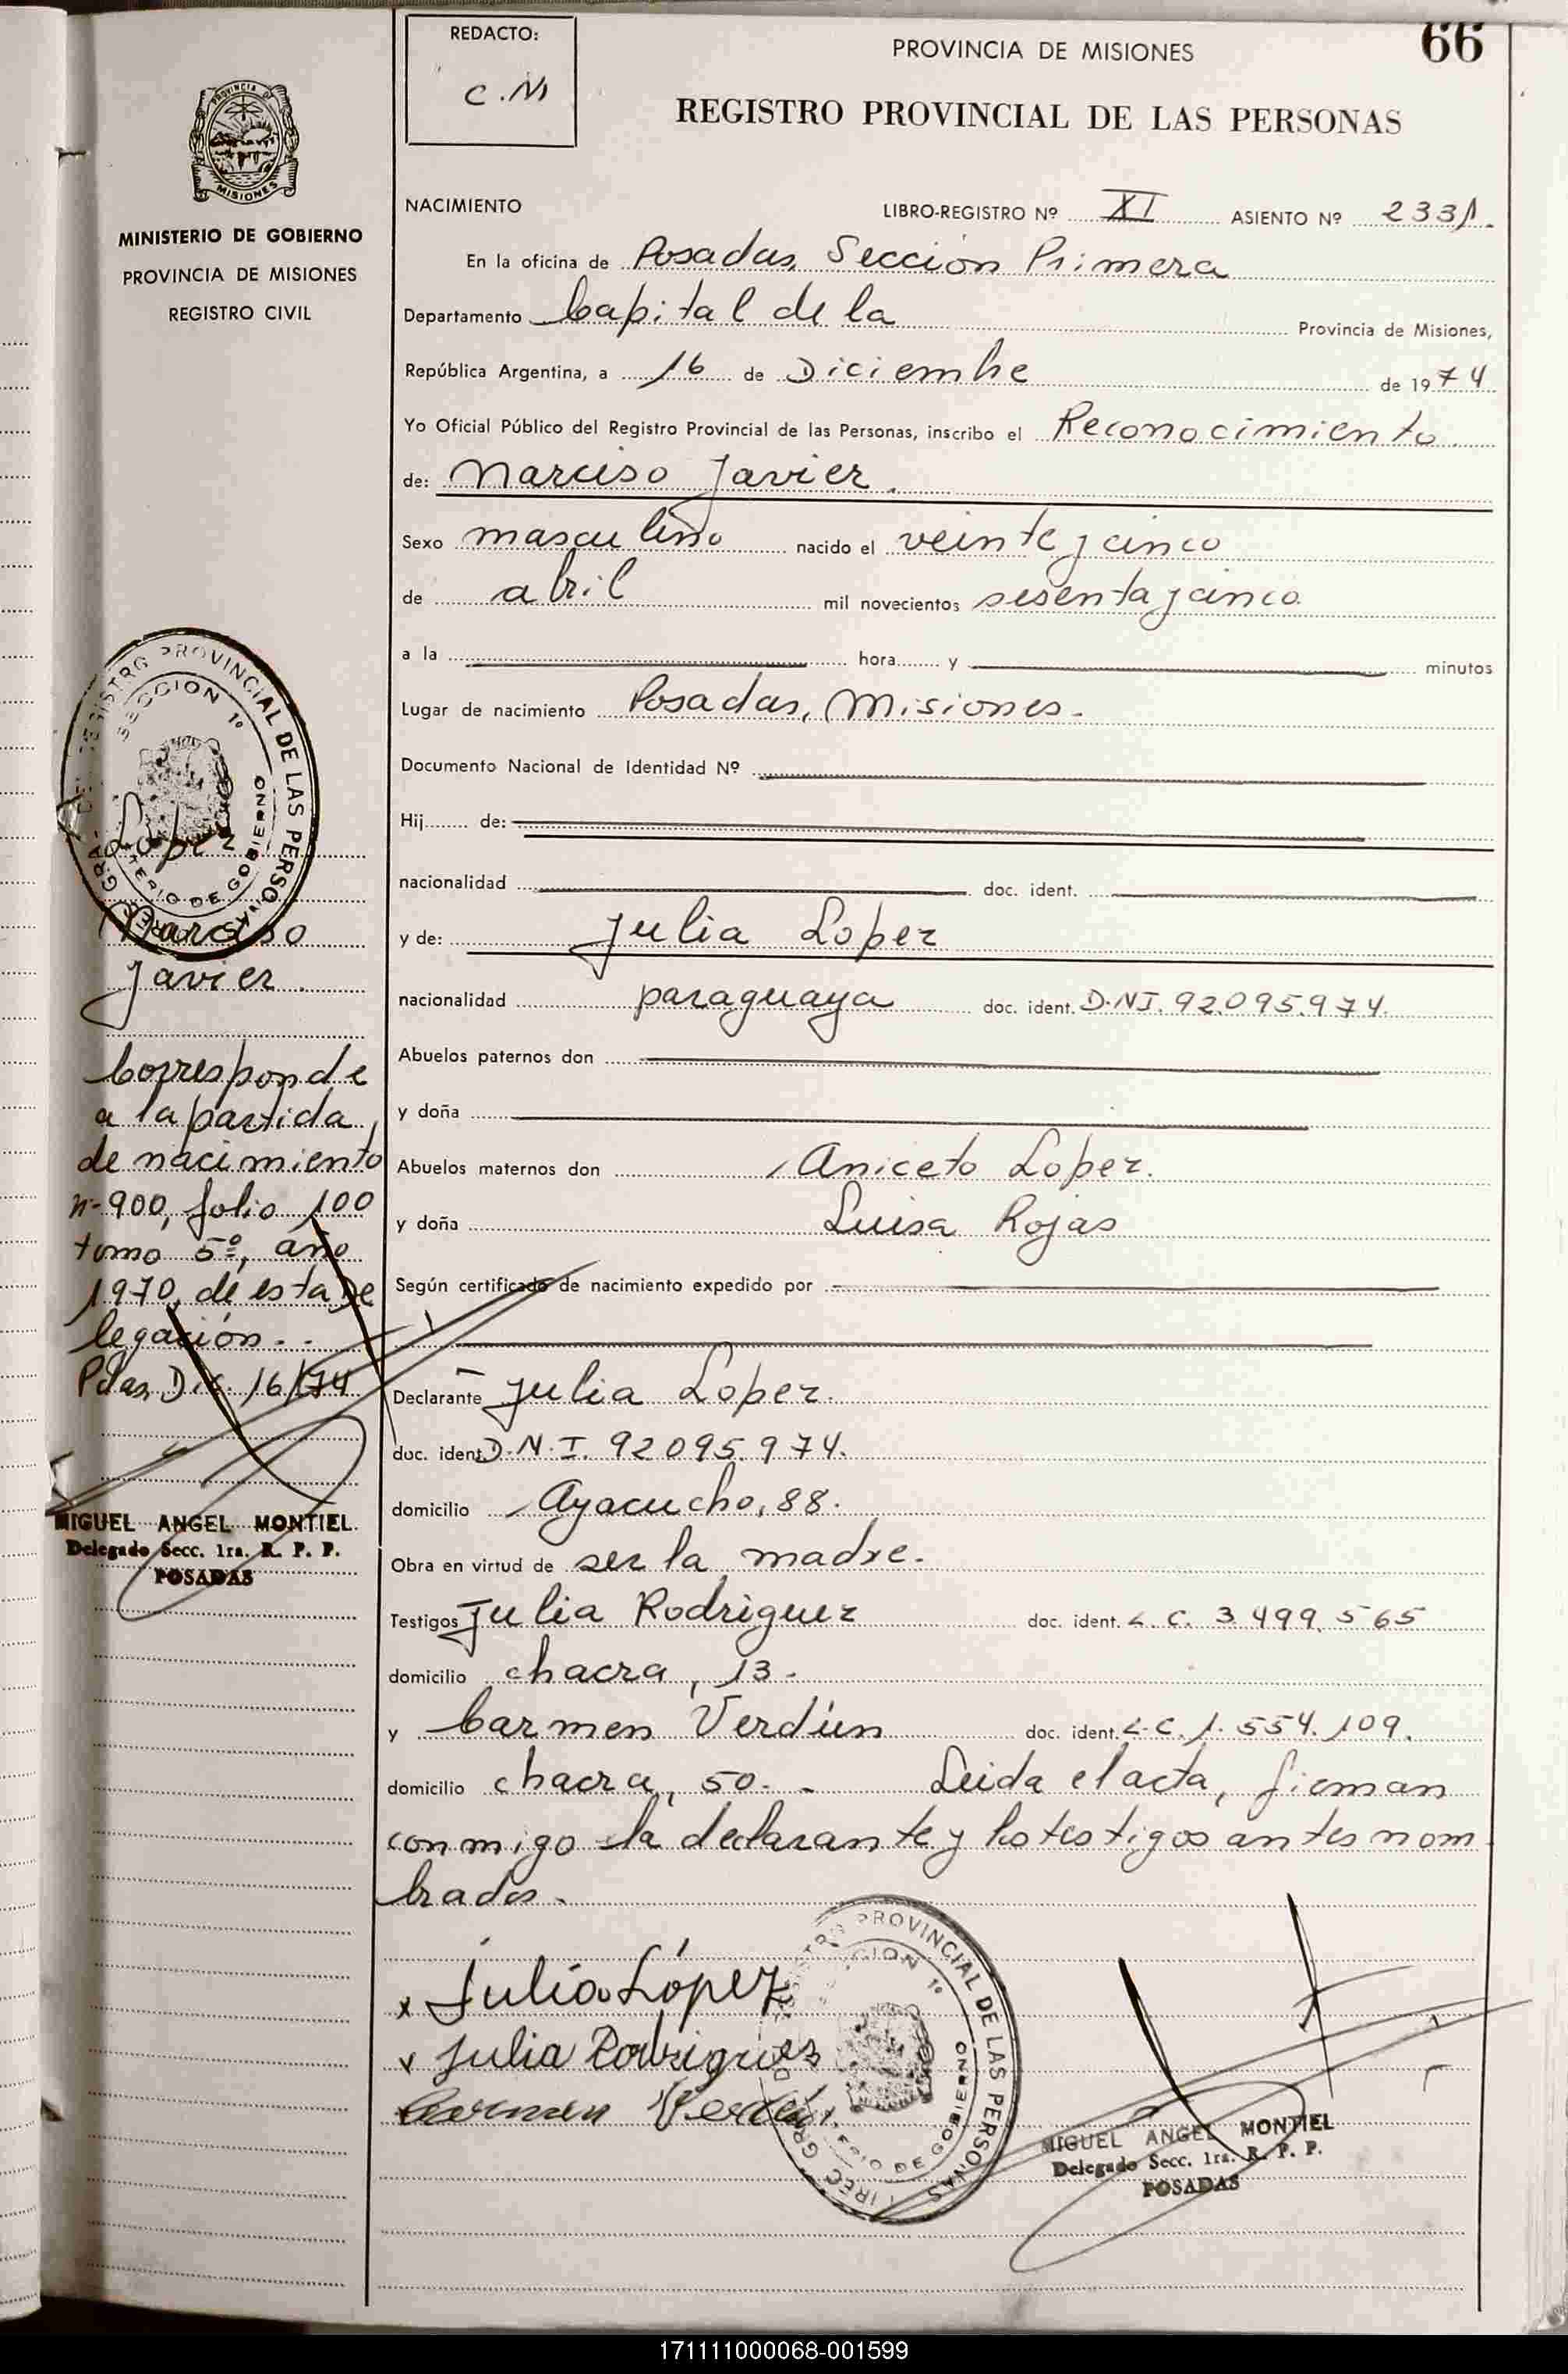 REDACTO:
C.M
PROVINCIA DE MISIONES
66
REGISTRO PROVINCIAL DE LAS PERSONAS
PROVINCIA DE
MISIONES
MINISTERIO DE GOBIERNO
PROVINCIA DE MISIONES
REGISTRO CIVIL
NACIMIENTO
LIBRO-REGISTRO Nº XI ASIENTO Nº 2331.
En la oficina de Posadas, Sección Primera
Departamento Capital de la Provincia de Misiones,
República Argentina, a 16 de Diciembre de 1974
Yo Oficial Público del Registro Provincial de las Personas, inscribo el Reconocimiento
de: Narciso Javier.
Sexo masculino nacido el veinte y cinco
de abril mil novecientos sesenta y cinco.
a la hora y minutos
Lugar de nacimiento Posadas, Misiones.
Documento Nacional de Identidad Nº
Hij de:
nacionalidad doc. ident.
y de: Julia Lopez
nacionalidad paraguaya doc. ident. D.N.I. 92.095.974.
Abuelos paternos don
y doña
Abuelos maternos don Aniceto Lopez.
y doña Luisa Rojas
Según certificado de nacimiento expedido por
Declarante Julia Lopez.
doc. ident. D.N.I. 92095.974.
domicilio Ayacucho, 88.
Obra en virtud de ser la madre.
Testigos Julia Rodriguez doc. ident. L.C. 3.499.565
domicilio chacra, 13.
y Carmen Verdún doc. ident. L.C. 1.554.109.
domicilio chacra, 50.- Leida el acta, firman
conmigo la declarante y los testigos antes nom
brados.
x Julia López
x Julia Rodriguez
Carmen Verdún.
REGISTRO PROVINCIAL DE LAS PERSONAS
SECCION 1º
MINISTERIO DE GOBIERNO
Lopez
Narciso
Javier.
Corresponde
a la partida
de nacimiento
nº 900, folio 100
tomo 5º, año
1970, de esta De
legación..
Pdas, Dic. 16/74
MIGUEL ANGEL MONTIEL
Delegado Secc. 1ra. R. P. P.
POSADAS
PROVINCIAL DE LAS PERSONAS
CION 1º
DE GOBIERNO
MIGUEL ANGEL MONTIEL
Delegado Secc. 1ra. R. P. P.
POSADAS
171111000068-001599